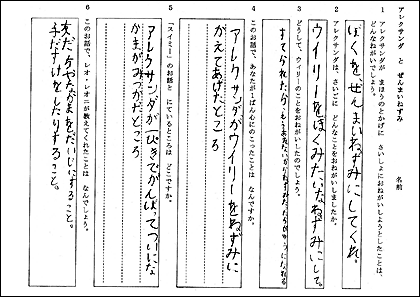 アレクサンダ と ぜんまいねずみ
名前
1 アレクサンダが まほうのとかげに さいしょにおねがいしようとしたことは、
どんなねがいでしょう。
ぼくを、ぜんまいねずみにしてくれ。
2 アレクサンダは、さいごに どんなことをおねがいしましたか。
ウイリーをぼくみたいなねずみにして。
3 どうして、ウィリーのことをおねがいしたのでしょう。
すてられたら、もうあえないから
4 このお話で、あなたが一ばん心にのこったことは なんですか。
アレクサンダがウイリーをねずみに
かえてあげたところ
5 「スイミー」のお話と にているところは どこですか。
アレクサンダが一ぴきでがんばってついにな
かまがみつかったところ
6 このお話で、レオ・レオニが教えてくれたことは なんでしょう。
友だちやなかまをだいじにすること。
手だすけをしたりすること。